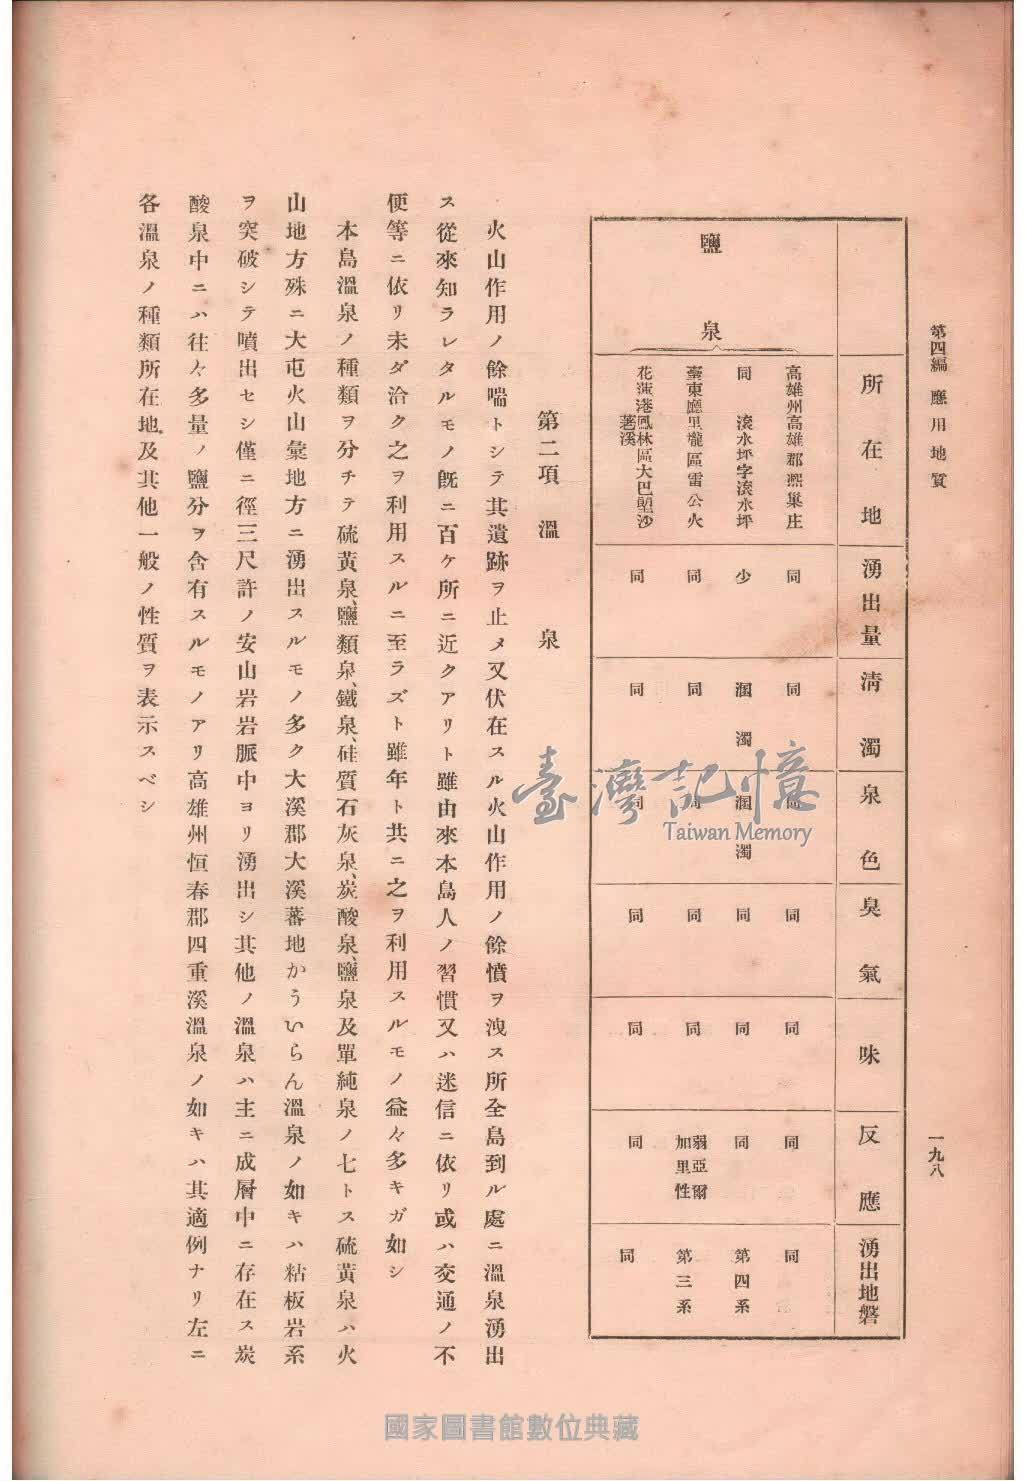 第四編 應用地質
一九八
所在地
湧出量
清濁
泉色
臭氣
味
反應
湧出地磐
鹽泉
高雄州高雄郡燕巢庄
同
同
同
同
同
同
同
同 滾水坪字滾水坪
少
溷濁
溷濁
同
同
同
第四系
臺東廳里壠區雷公火
同
同
同
同
同
弱亞爾加里性
第三系
花蓮港鳳林區大巴塱沙荖溪
同
同
同
同
同
同
同
第二項 溫泉
火山作用ノ餘喘トシテ其遺跡ヲ止メ又伏在スル火山作用ノ餘憤ヲ洩ス所全島到ル處ニ溫泉湧出
ス從來知ラレタルモノ既ニ百ケ所ニ近クアリト雖由來本島人ノ習慣又ハ迷信ニ依リ或ハ交通ノ不
便等ニ依リ未ダ洽ク之ヲ利用スルニ至ラズト雖年ト共ニ之ヲ利用スルモノ益々多キガ如シ
本島溫泉ノ種類ヲ分チテ硫黃泉、鹽類泉、鐵泉、硅質石灰泉、炭酸泉、鹽泉及單純泉ノ七トス硫黃泉ハ火
山地方殊ニ大屯火山彙地方ニ湧出スルモノ多ク大溪郡大溪蕃地かういらん溫泉ノ如キハ粘板岩系
ヲ突破シテ噴出セシ僅ニ徑三尺許ノ安山岩岩脈中ヨリ湧出シ其他ノ溫泉ハ主ニ成層中ニ存在ス炭
酸泉中ニハ往々多量ノ鹽分ヲ含有スルモノアリ高雄州恒春郡四重溪溫泉ノ如キハ其適例ナリ左ニ
各溫泉ノ種類所在地及其他一般ノ性質ヲ表示スベシ
臺灣記憶
Taiwan Memory
國家圖書館數位典藏